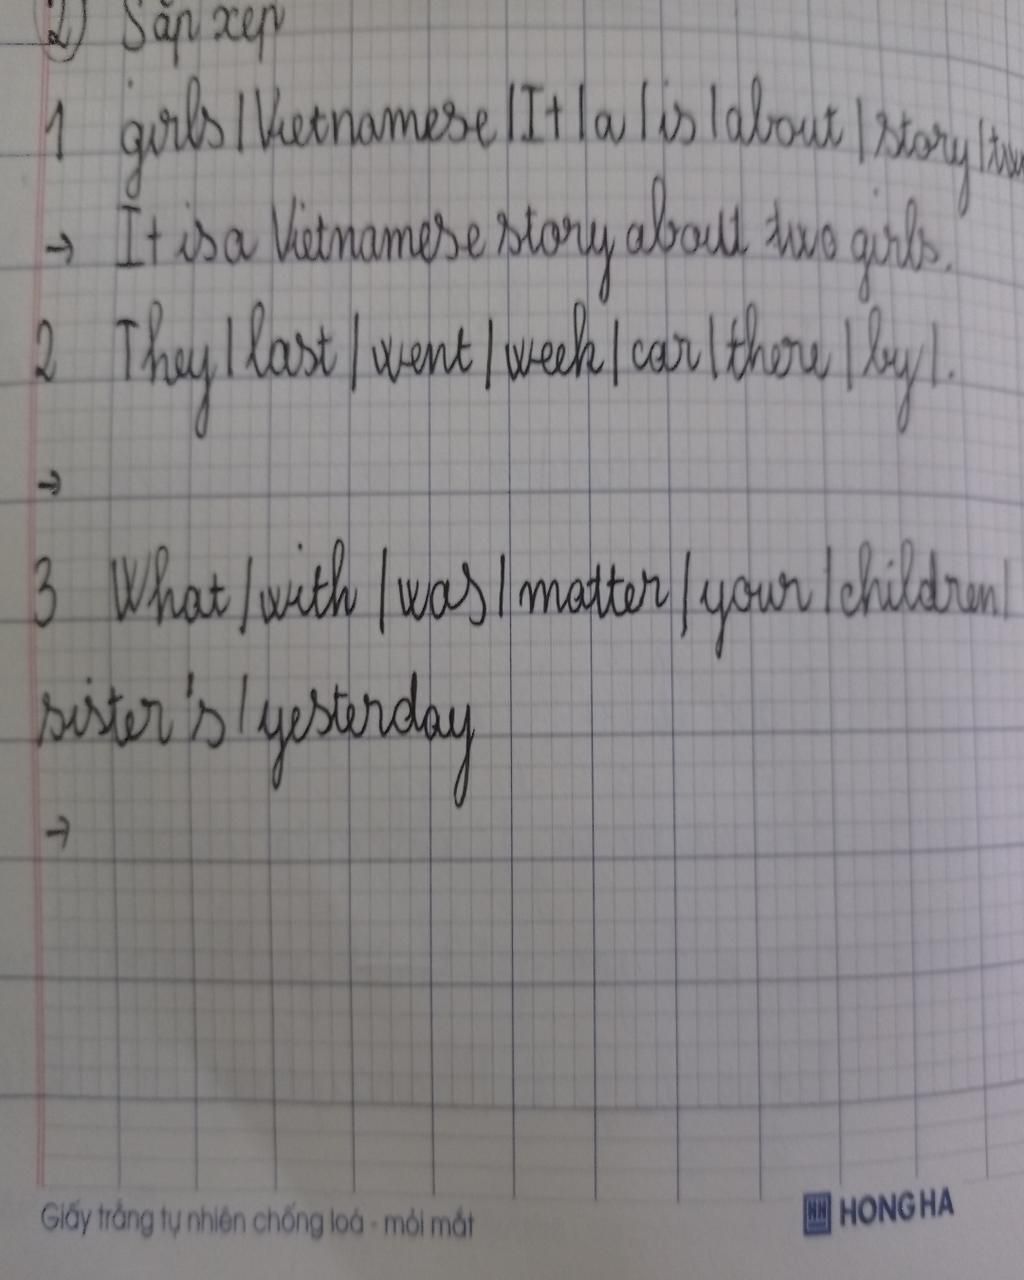 2) Sắp xếp
1 girls / Vietnamese / It / a / is / about / story /
→ It is a Vietnamese story about two girls.
2 They / last / went / week / car / there / by / .
→
3 What / with / was / matter / your / children /
sister's / yesterday
→
Giấy trắng tự nhiên chống loá - mỏi mắt
HH HONG HA